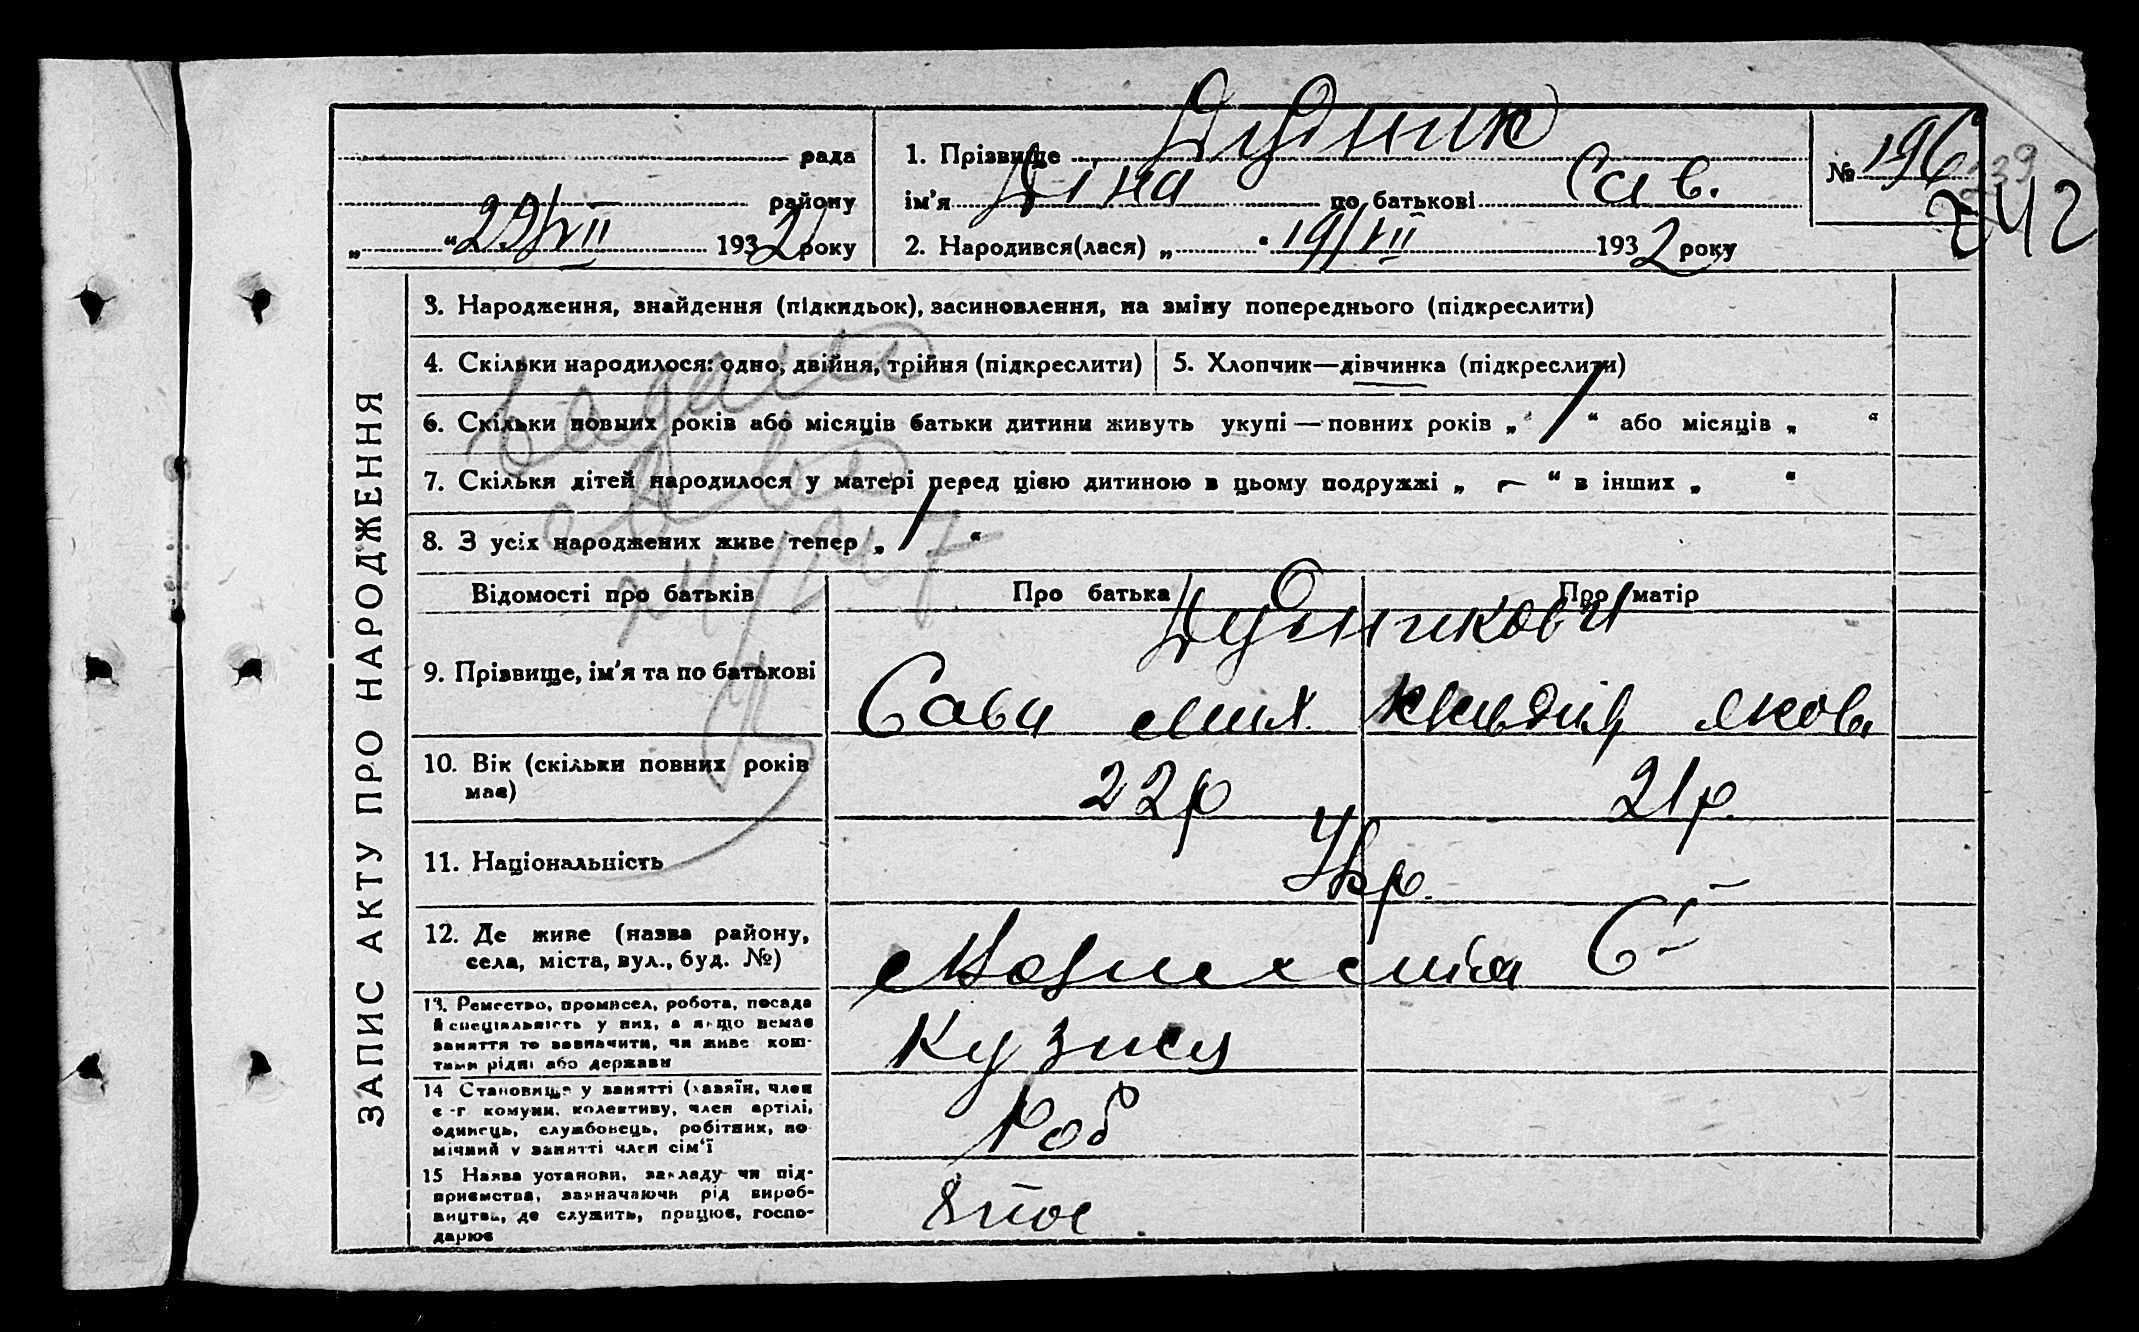 Дудник
рада
1. Прізвище
№ 196
239
242
району
ім'я Діна по батькові Сав.
„ “ 29/VII 1932 року
2. Народився(лася) „ “ 19/VII 1932 року
ЗАПИС АКТУ ПРО НАРОДЖЕННЯ
3. Народження, знайдення (підкидьок), засиновлення, на зміну попереднього (підкреслити)
4. Скільки народилося: одно, двійня, трійня (підкреслити)
5. Хлопчик—дівчинка (підкреслити)
6. Скільки повних років або місяців батьки дитини живуть укупі — повних років „ 1 “ або місяців „ “
7. Скільки дітей народилося у матері перед цією дитиною в цьому подружжі „ — “ в інших „ “
8. З усіх народжених живе тепер „ 1 “
Відомості про батьків
Про батька
Про матір
Дудникови
9. Прізвище, ім'я та по батькові
Сава мих
Яков
10. Вік (скільки повних років має)
22р
21р.
11. Національність
Укр.
12. Де живе (назва району, села, міста, вул., буд. №)
13. Ремество, промисел, робота, посада й спеціяльність у них, а якщо немає заняття то зазначити, чи живе коштами рідні або держави
Кузнец
14 Становище у занятті (хазяїн, член с-г комуни, колективу, член артілі, одинець, службовець, робітник, помічний у занятті член сім'ї
Роб
15 Назва установи, закладу чи підприємства, зазначаючи рід виробництва, де служить, працює, господарює